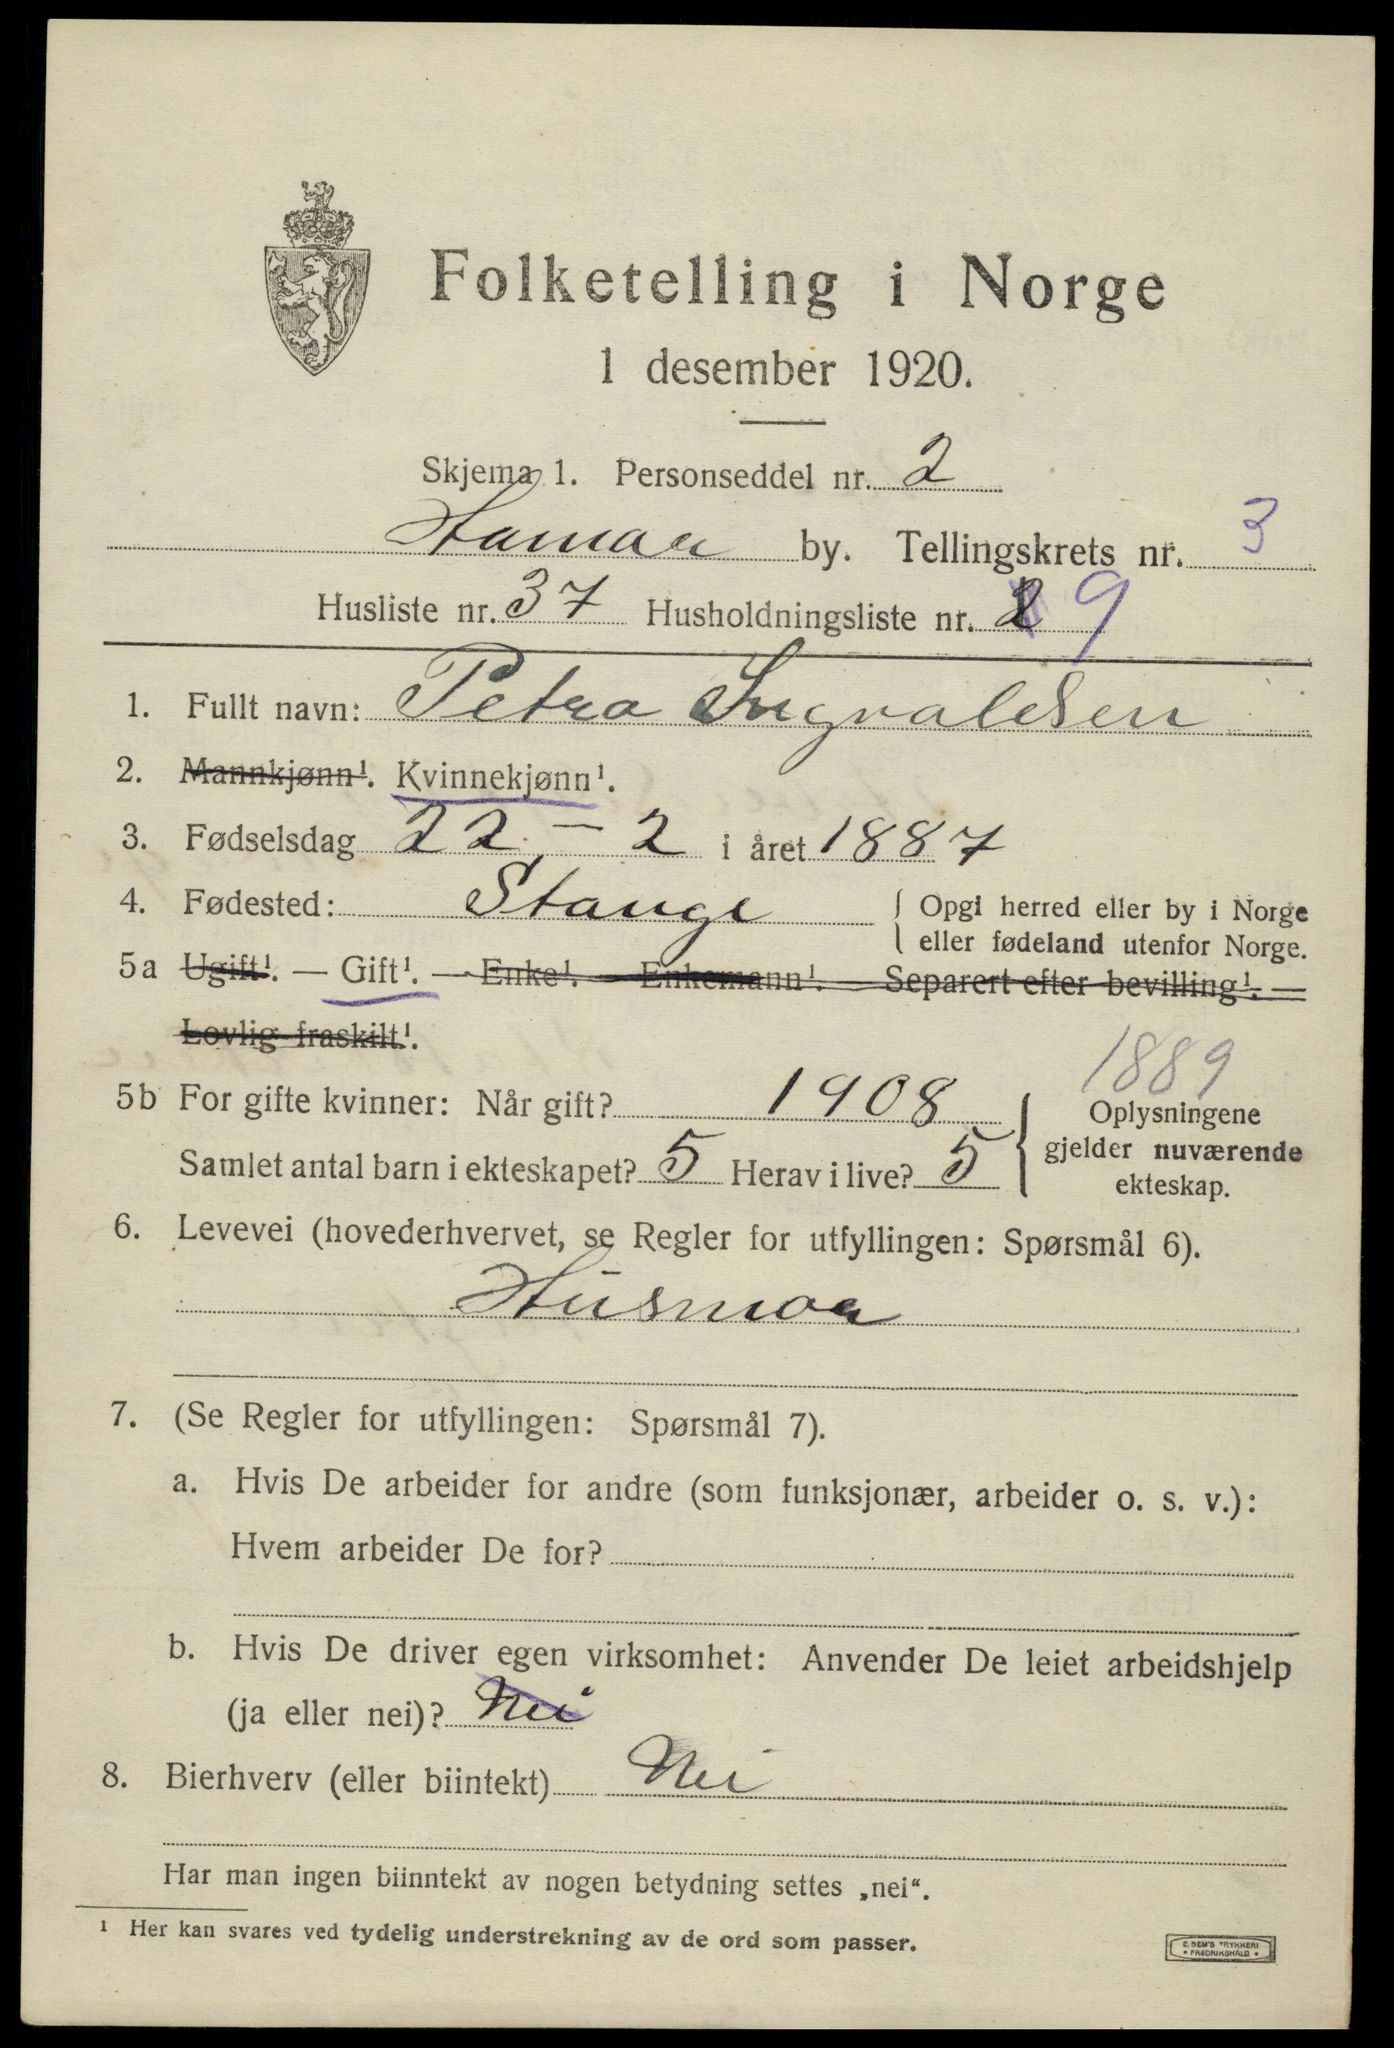 Folketelling i Norge
1 desember 1920.
Skjema 1. Personseddel nr. 2
Hamar by. Tellingskrets nr. 3
Husliste nr. 37 Husholdningsliste nr. 2 9
1. Fullt navn: Petra Ingvaldsen
2. Mannkjønn¹. Kvinnekjønn¹.
3. Fødselsdag 22 – 2 i året 1887
4. Fødested: Stange { Opgi herred eller by i Norge
eller fødeland utenfor Norge.
5a Ugift¹. — Gift¹. — Enke¹. — Enkemann¹. — Separert efter bevilling¹. —
Lovlig fraskilt¹.
1889
5b For gifte kvinner: Når gift? 1908 Oplysningene
gjelder nuværende
Samlet antal barn i ekteskapet? 5 Herav i live? 5
ekteskap.
6. Levevei (hovederhvervet, se Regler for utfyllingen: Spørsmål 6).
Husmor
7. (Se Regler for utfyllingen: Spørsmål 7).
a. Hvis De arbeider for andre (som funksjonær, arbeider o. s. v.):
Hvem arbeider De for?
b. Hvis De driver egen virksomhet: Anvender De leiet arbeidshjelp
(ja eller nei)? Nei
8. Bierhverv (eller biintekt) Nei
Har man ingen biinntekt av nogen betydning settes „nei“.
¹ Her kan svares ved tydelig understrekning av de ord som passer.
E. SEM'S TRYKKERI
• FREDRIKSHALD •